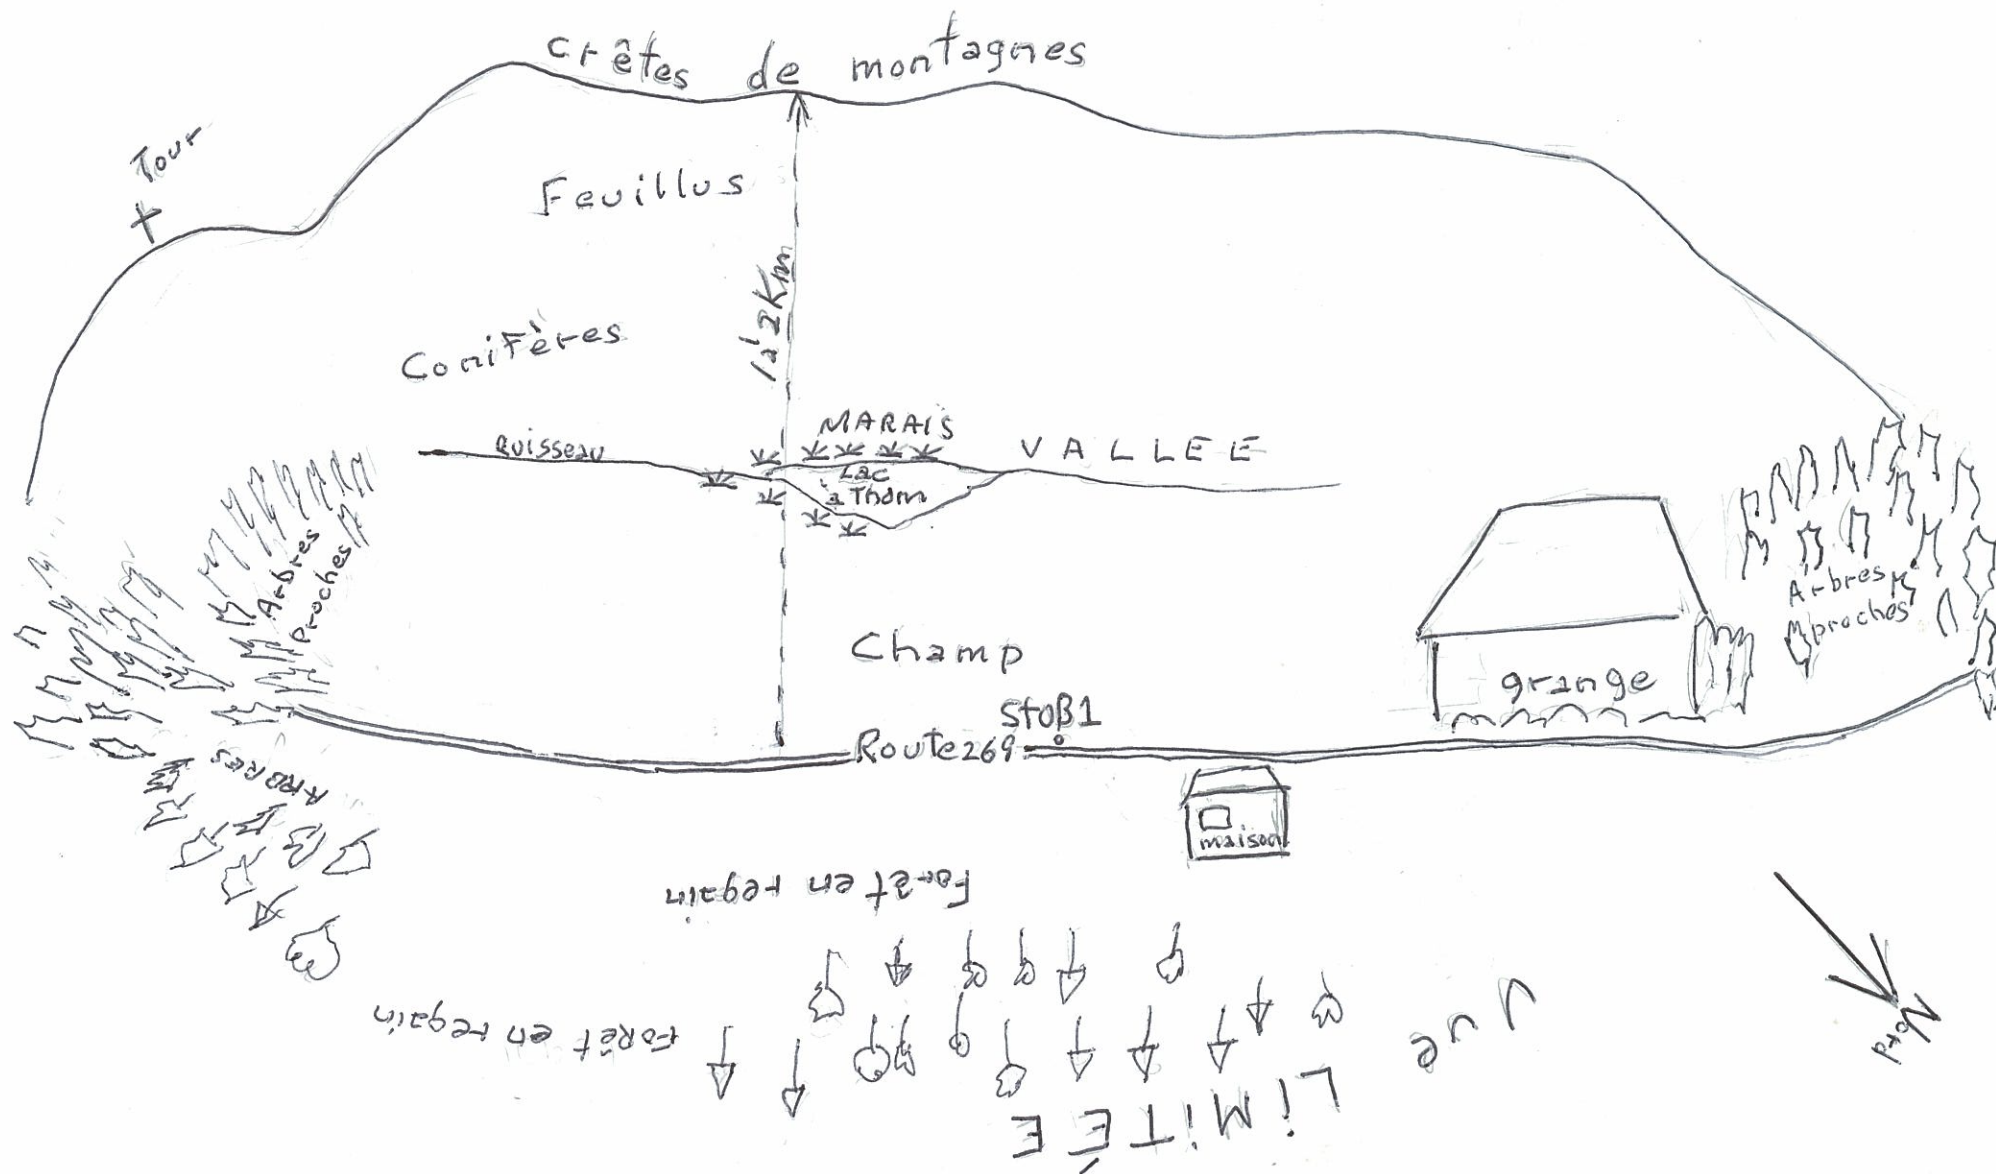 crêtes de montagnes
Tour
Feuillus
1 à 2 Km
Conifères
MARAIS
Ruisseau
VALLEE
Lac
à Thom
Arbres
Proches
Arbres
proches
Champ
grange
StoB1
Route 269
ARBRES
maison
Forêt en regain
Nord
Forêt en regain
Vue
LiMiTÉE